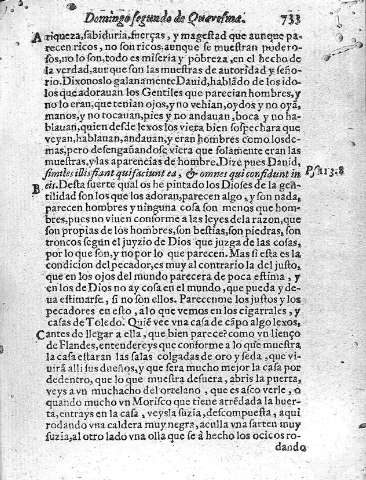 Domingo segundo de Quaresma. 733
A riqueza, sabiduria, fuerças, y magestad que aunque pa-
recen ricos, no son ricos, aunque se muestran podero-
sos, no lo son, todo es miseria y pobreza, en el hecho de
la verdad, aur que son las muestras de autoridad y seño-
rio. Dixonoslo galanamente Dauid, hablãdo de los ido-
los que adorauan los Gentiles que parecian hombres, y
no lo eran, que tenian ojos, y no vehian, oydos y no oyã,
manos, y no tocauan, pies y no andauan, boca y no ha-
blauan, quien desde lexos los viera bien sospechara que
veyan, hablauan, andauan, y eran hombres como los de-
mas, pero desengañandose, viera que solamente eran las
muestras, y las aparencias de hombre. Dize pues Dauid,
similes illis fiant qui faciunt ea, & omnes qui confidunt in Ps. 113. 8
B eis. Desta suerte qual os he pintado los Dioses de la gen-
tilidad son los que los adoran, parecen algo, y son nada,
parecen hombres y ninguna cosa son menos que hom-
bres, pues no viuen conforme a las leyes dela razon, que
son propias de los hombres, son bestias, son piedras, son
troncos segun el juyzio de Dios que juzga de las cosas,
por lo que son, y no por lo que parecen. Mas si esta es la
condicion del pecador, es muy al contrario la del justo,
que en los ojos del mundo parecera de poca estima, y
en los de Dios no ay cosa en el mundo, que pueda y de-
ua estimarse, si no son ellos. Parecenme los justos y los
pecadores en esto, alo que vemos en los cigarrales, y
casas de Toledo. Quiē vee vna casa de cãpo algo lexos,
C antes de llegar a ella, que bien parece? como vn lienço
de Flandes, entendereys que conforme a lo que muestra
la casa estaran las salas colgadas de oro y seda, que viui-
rã alli sus dueños, y que sera mucho mejor la casa por
dedentro, que lo que muestra desuera, abris la puerta,
veys a vn muchacho del ortelano, que es asco verle, o
quando mucho vn Morisco que tiene arrēdada la huer-
ta, entrays en la casa, veysla suzia, descompuesta, aqui
rodando vna caldera muy negra, aculla vna sarten muy
suzia, al otro lado vna olla que se â hecho los ocicos ro-
dando